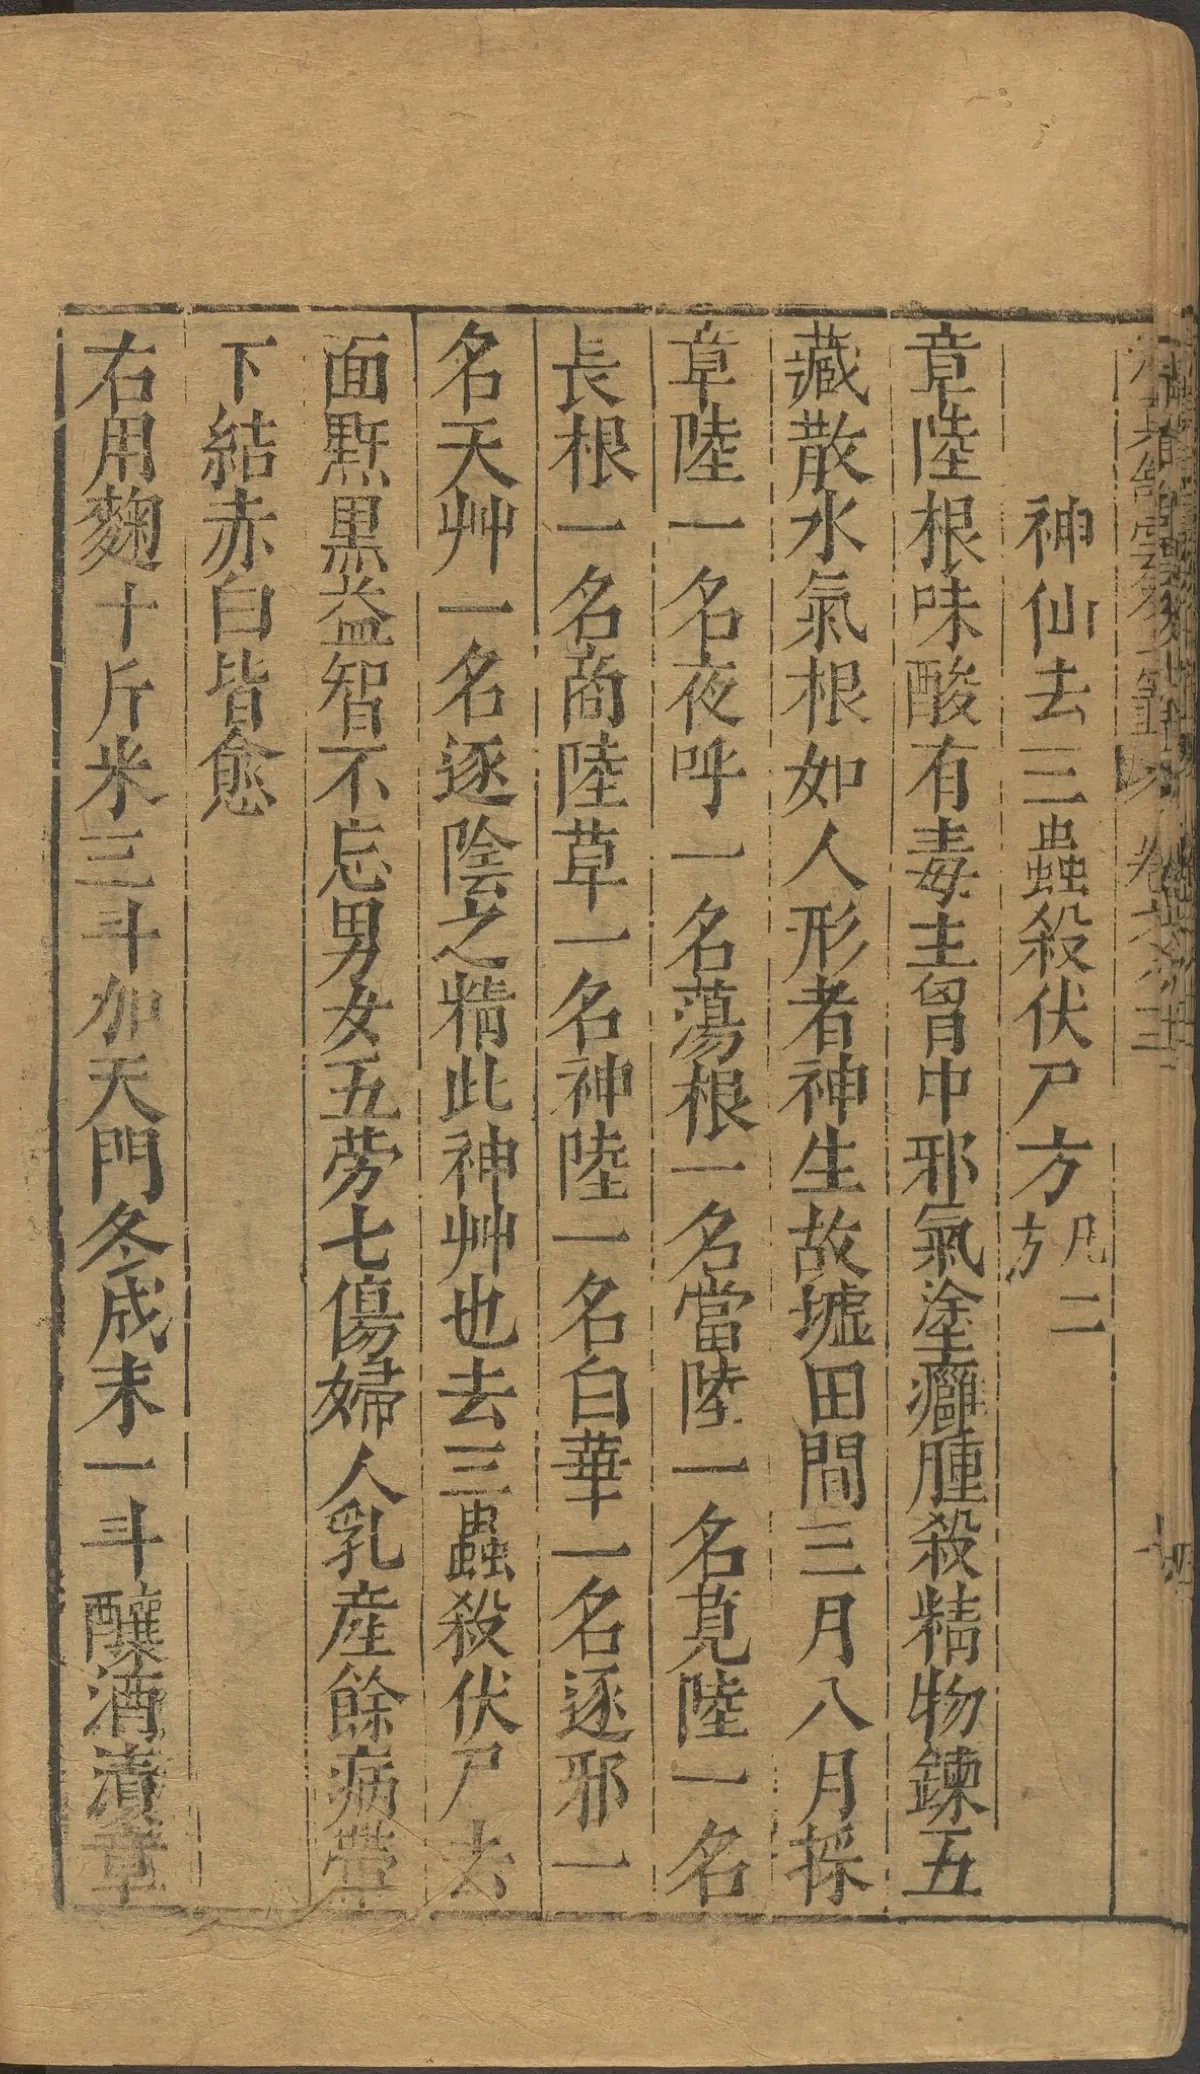 神仙去三蟲殺伏尸方凡二方
章陸根味酸有毒主胷中邪氣塗癰腫殺精物鍊五
藏散水氣根如人形者神生故墟田間三月八月採
章陸一名夜呼一名蕩根一名當陸一名莧陸一名
長根一名商陸草一名神陸一名白華一名逐邪一
名天艸一名逐陰之精此神艸也去三蟲殺伏尸去
面黑益智不忘男女五勞七傷婦人乳產餘病帶
下結赤白皆愈
右用麴十斤米三斗加天門冬成末一斗釀酒漬章